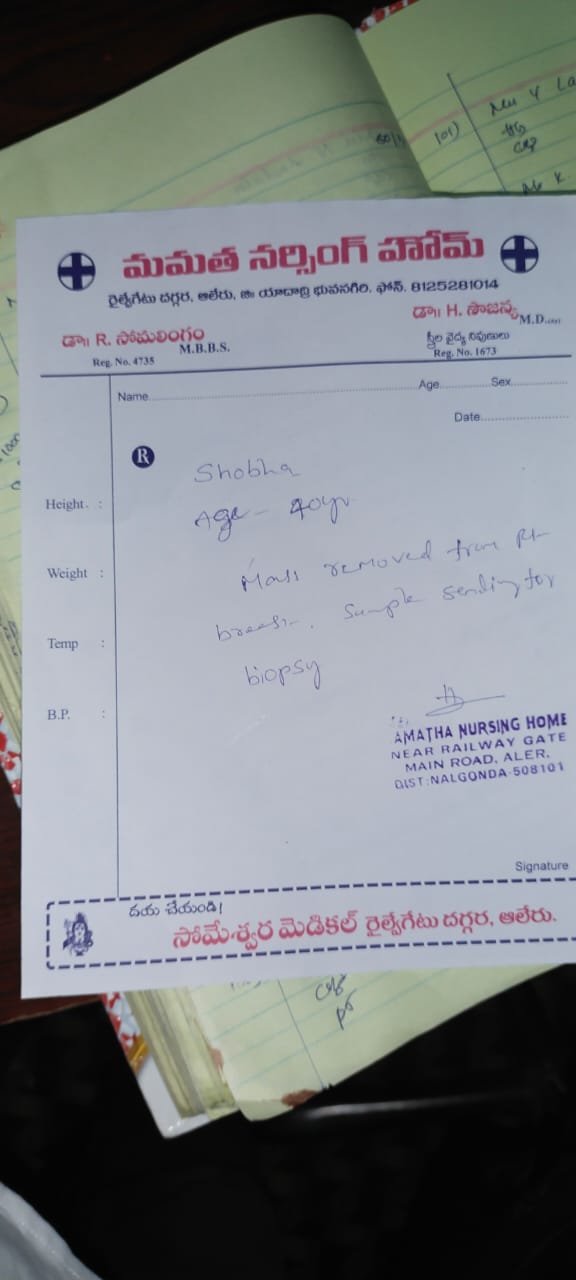 101)
మమత నర్సింగ్ హోమ్
రైల్వేగేటు దగ్గర, ఆలేరు, జిః యాదాద్రి భువనగిరి. ఫోన్. 8125281014
డా॥ R. సోమలింగం
M.B.B.S.
Reg. No. 4735
డా॥ H. సౌజన్య
M.D.
స్త్రీల వైద్య నిపుణులు
Reg. No. 1673
Name
Age
Sex
Date
R
Shobha
Age - 40yr
Mass removed from Rt
breast. Sample sending for
biopsy
Height. :
Weight :
Temp :
B.P. :
AMATHA NURSING HOME
NEAR RAILWAY GATE
MAIN ROAD, ALER,
DIST:NALGONDA-508101
Signature
దయ చేయండి!
సోమేశ్వర మెడికల్ రైల్వేగేటు దగ్గర, ఆలేరు.